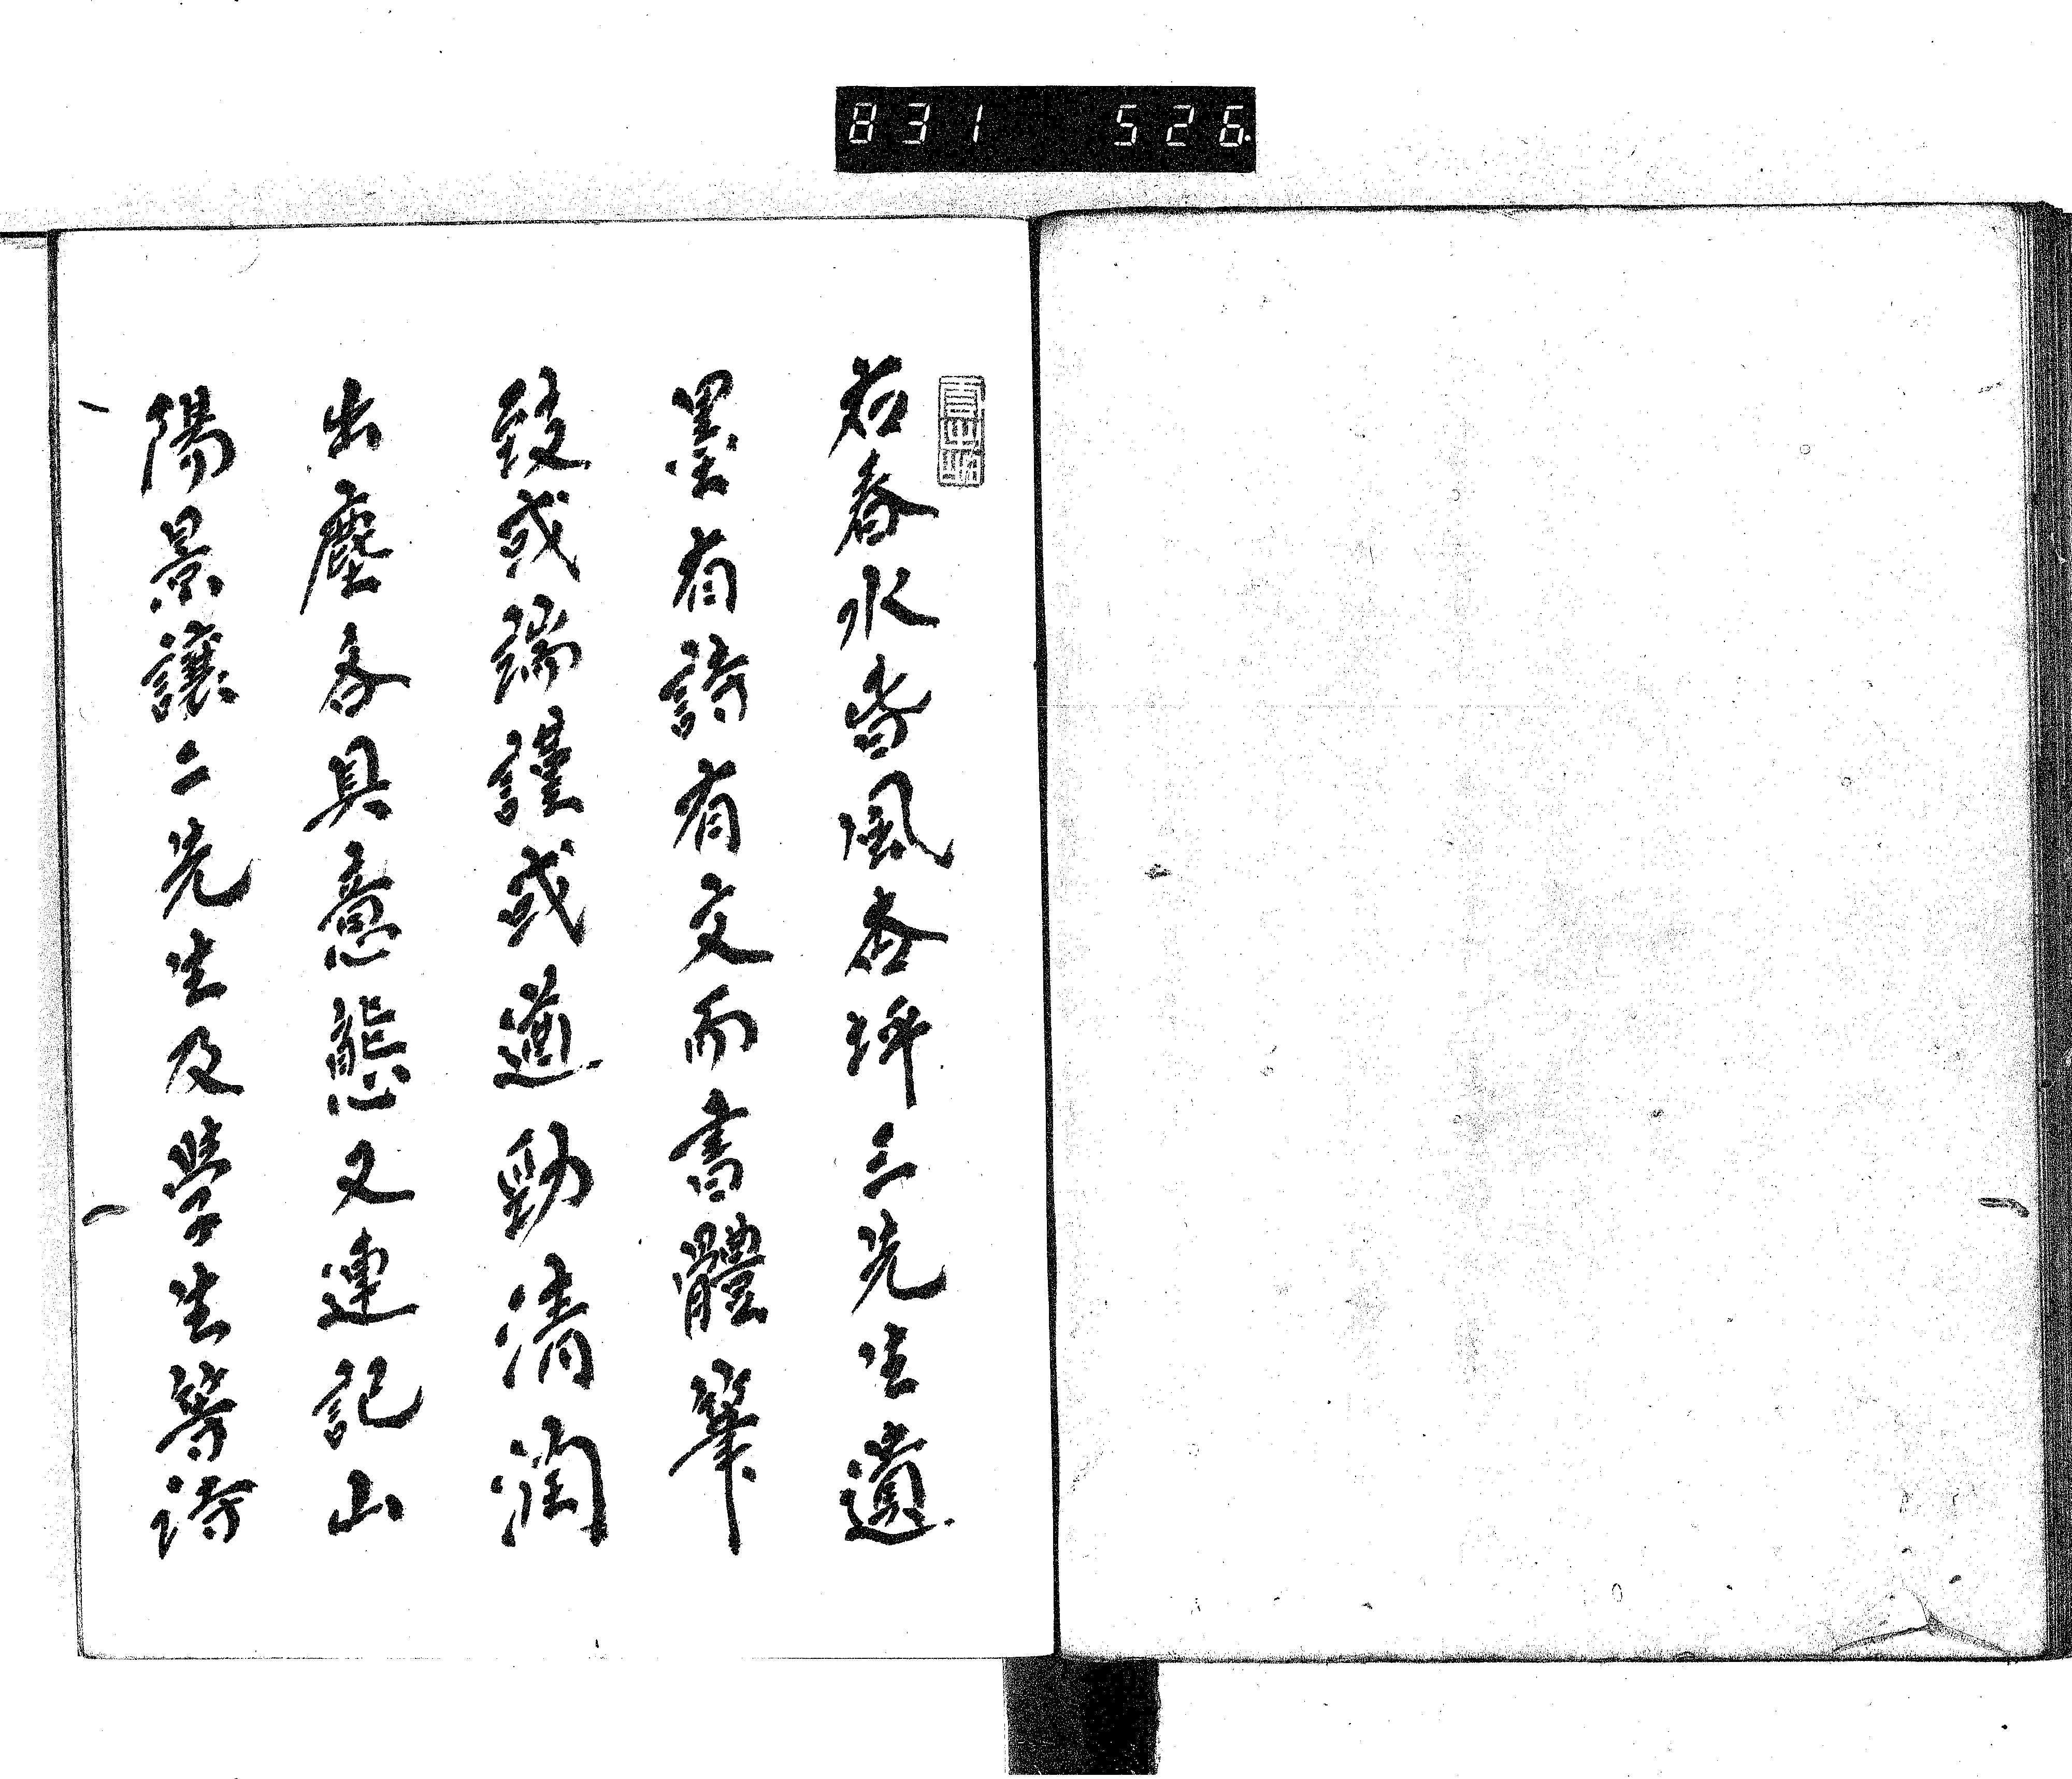 831 526
右春水皆風杏坪三先生遺
墨有詩有文而書體筆
致或端謹或遒勁清潤
出塵各具意態又連記山
陽景讓二先生及學生等詩